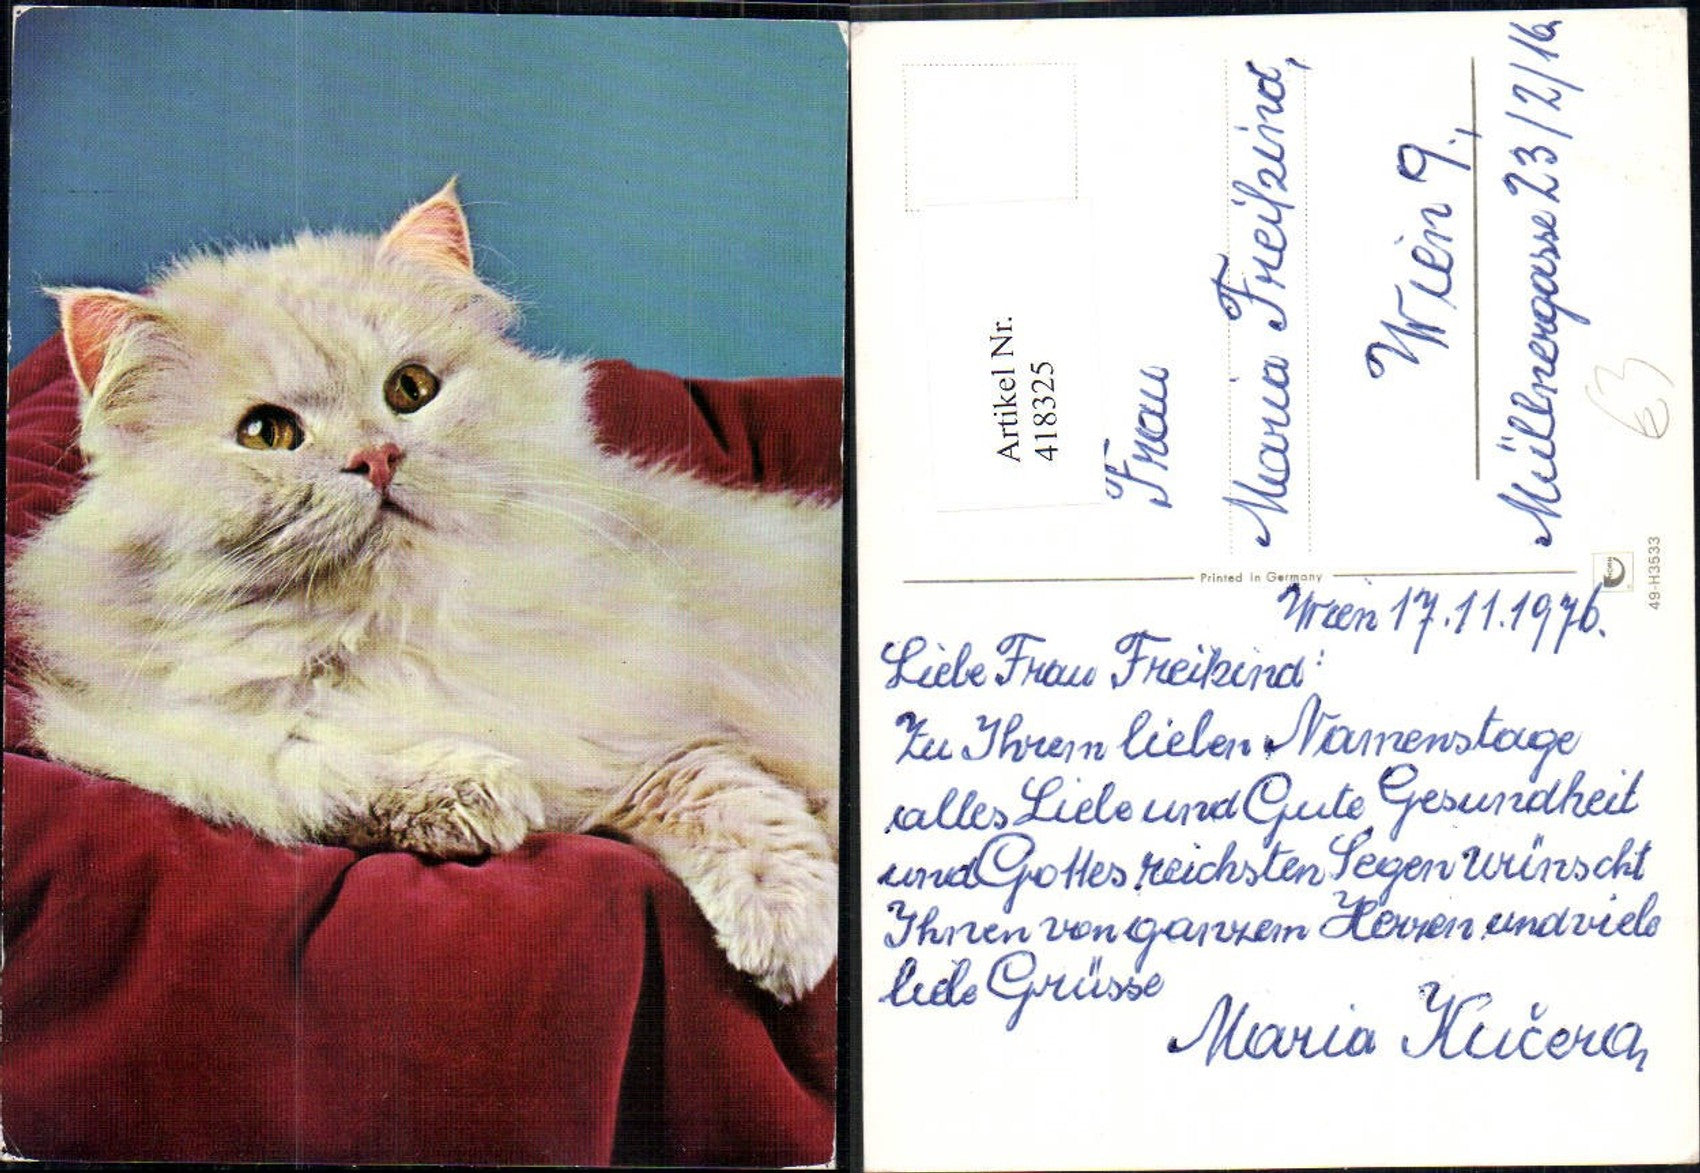 Artikel Nr.
418325
Frau
Maria Freikind,
Wien 9.,
Müllnergasse 23/2/16
€3
Printed in Germany
49-H3533
Wien 17.11.1976.
Liebe Frau Freikind:
Zu Ihrem lieben Namenstage
alles Liebe und Gute Gesundheit
und Gottes reichsten Segen wünscht
Ihnen von ganzem Herzen und viele
liebe Grüsse
Maria Kučera